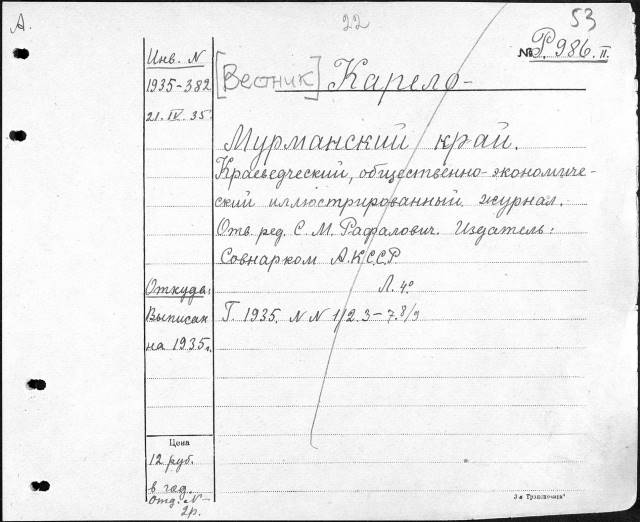 А. 22 53
№ Р. 986. II.
[Вестник] Карело-
Мурманский край.
Краеведческий, общественно-экономиче-
ский иллюстрированный журнал.
Отв. ред. С. М. Рафалович. Издатель:
Совнарком А.К.С.С.Р.
Л. 4º
Г. 1935. N N 1/2. 3-7. 8/9
Инв. N
1935-382
21. IV. 35
Откуда:
Выписан
на 1935г.
Цена
12 руб.
в год.
Отд. N-
2р.